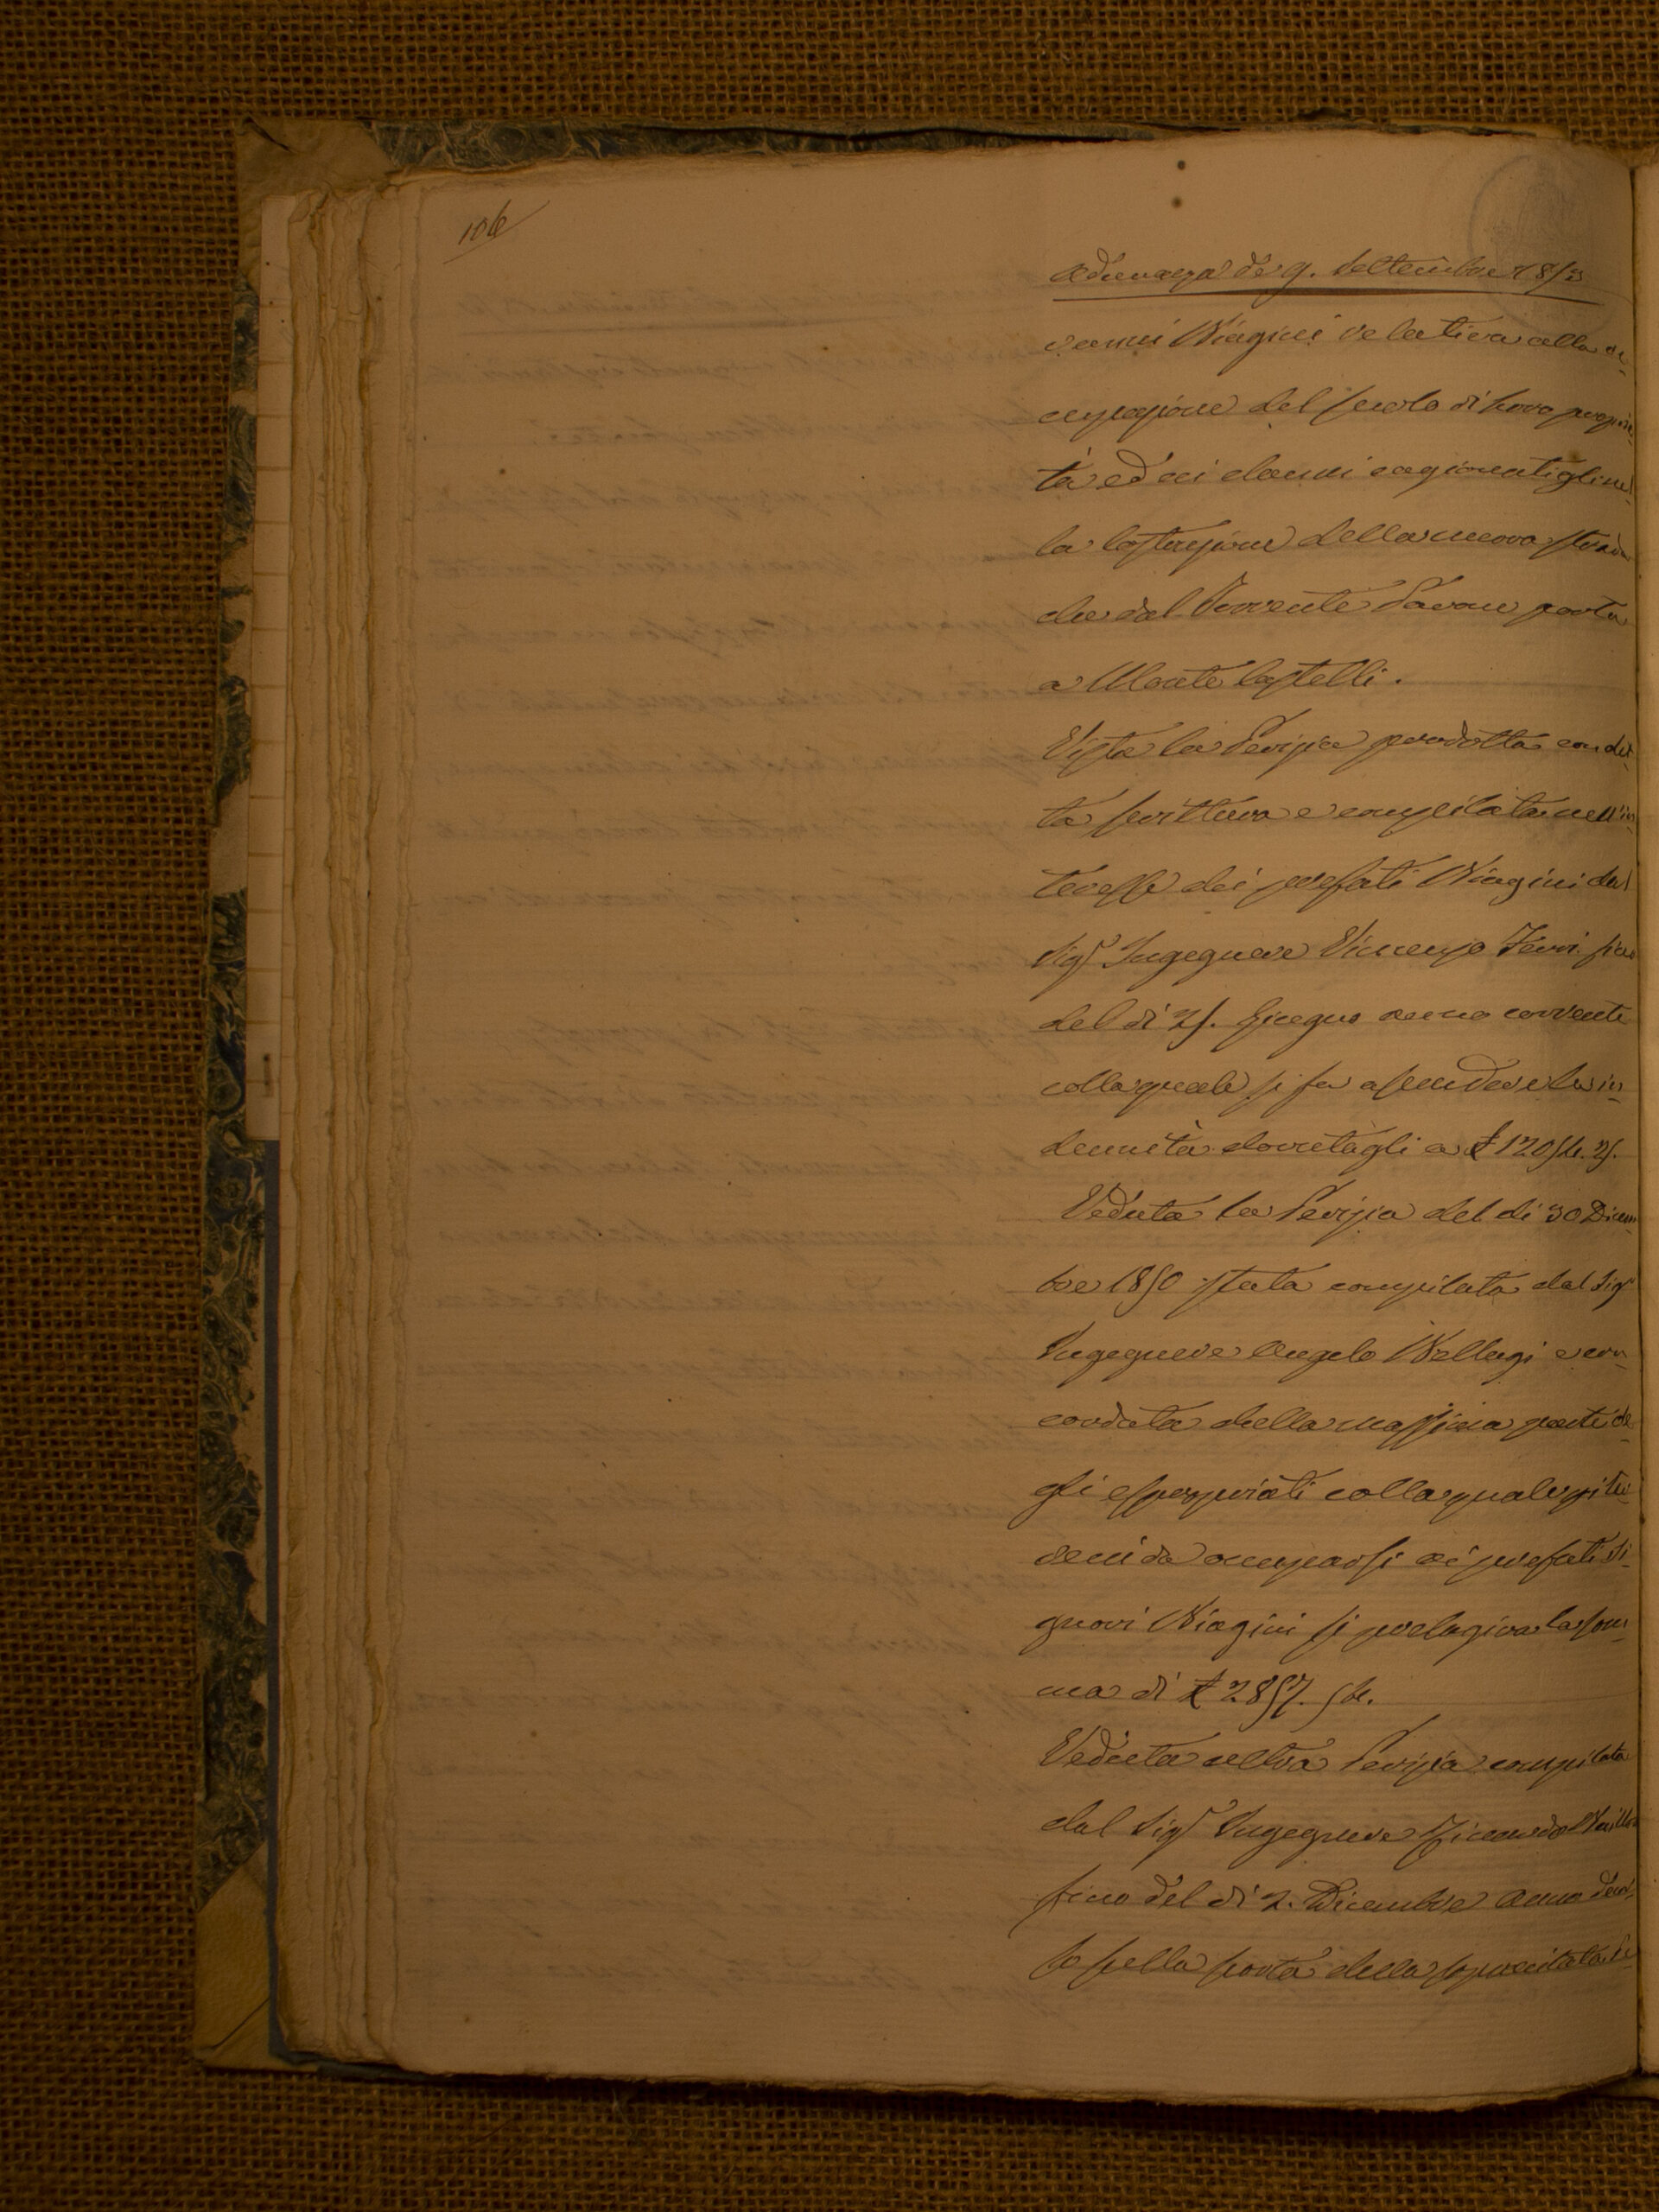 106
Adunanza de' 9. Settembre 1853
vanni Biagini relativa alla oc-
cupazione del suolo di loro proprie-
tà ed ai danni cagionatigli nel-
la Costruzione della nuova strada
che dal Torrente Pavone porta
a Monte Castelli.
Vista la Perizia prodotta con det-
ta scrittura e compilata nell'in-
teresse dei prefati Biagini dal
Sigr Ingegnere Vincenzo Ferri sino
del dì 25. Giugno anno corrente
colla quale si fa ascendere la in-
dennità dovutagli a £ 1205
Veduta la Perizia del dì 30 Dicem-
bre 1850 stata compilata dal Sigr
Ingegnere Angelo Bellugi e con-
cordata dalla massima parte de-
gli espropriati colla quale pei ter-
reni da occuparsi ai prefati Si-
gnori Biagini si prelagiva la som-
ma di £ 2857.
Veduta altra Perizia compilata
dal Sigr Ingegnere
fino del dì 2. Dicembre anno decor-
so sulla scorta della